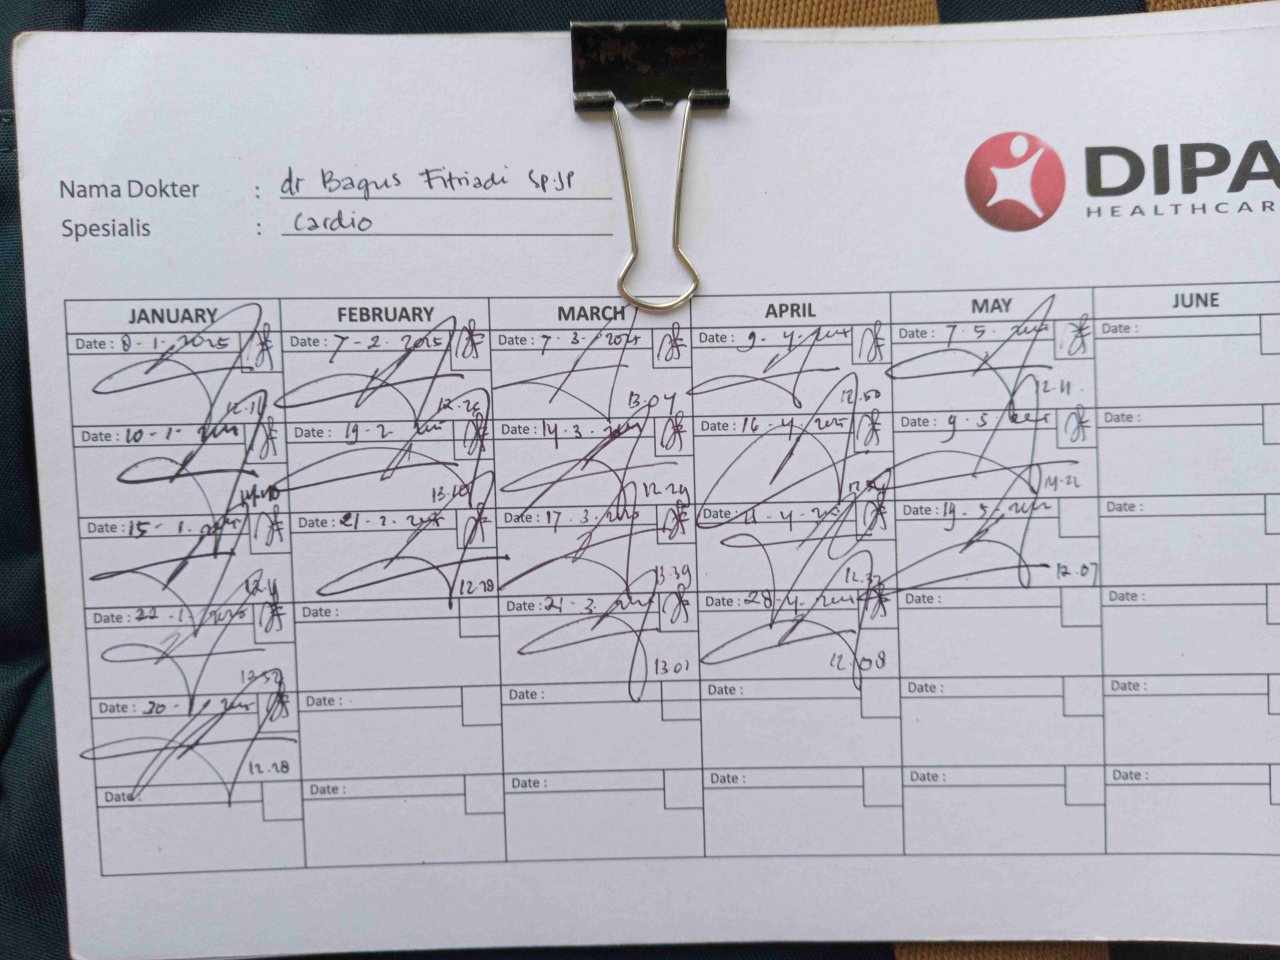 Nama Dokter : dr Bagus Fitriadi Sp.JP
Spesialis : Cardio
DIPA
HEALTHCAR
JANUARY FEBRUARY MARCH APRIL MAY JUNE
Date : 8-1-2025 Date : 7-2-2025 Date : 7-3-2025 Date : 9-4-2025 Date : 7-5-2025 Date :
12.26 13.04 12.50 12.11
Date : 10-1-2025 Date : 19-2-2025 Date : 14-3-2025 Date : 16-4-2025 Date : 9-5-2025 Date :
13.10 12.29 14.22
Date : 15-1-2025 Date : 21-2-2025 Date : 17-3-2025 Date : 4-2025 Date : 19-5-2025 Date :
12.28 13.39 12.07
Date : 22-1-2025 Date : Date : 21-3-2025 Date : 28-4-2025 Date : Date :
13.01 12.08
Date : 30-1-2025 Date : Date : Date : Date : Date :
12.28
Date : Date : Date : Date : Date : Date :